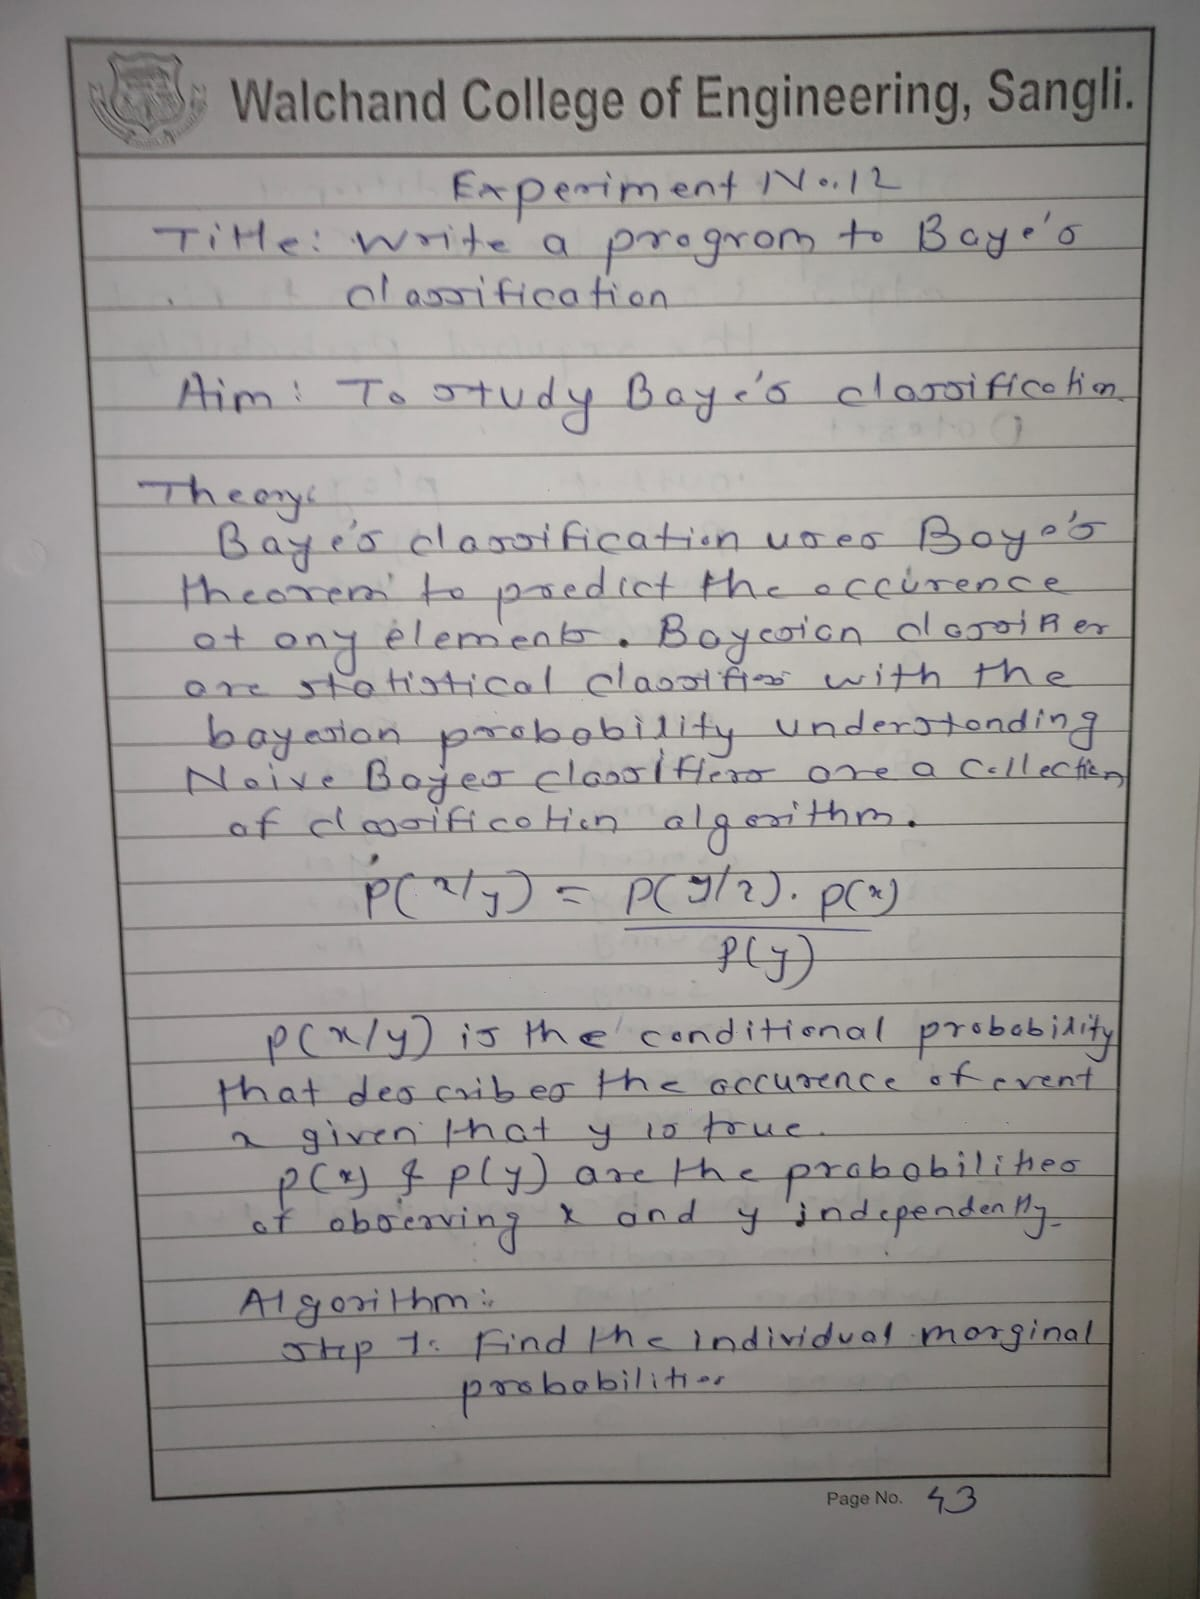 Walchand College of Engineering, Sangli.
Experiment No. 12
Title: Write a program to Baye's
classification
Aim: To study Baye's classification
Theory:
Baye's classification uses Baye's
theorem to predict the occurence
of any element. Bayesian classifier
are statistical classifier with the
bayesian probability understanding
Naive Bayes classifiers are a collection
of classification algorithm.
P(x/y) = P(y/x). P(x)
P(y)
P(x/y) is the conditional probability
that describes the occurence of event
x given that y is true.
P(x) & P(y) are the probabilities
of observing x and y independently
Algorithm:
Step 1: Find the individual marginal
probabilities
Page No. 43